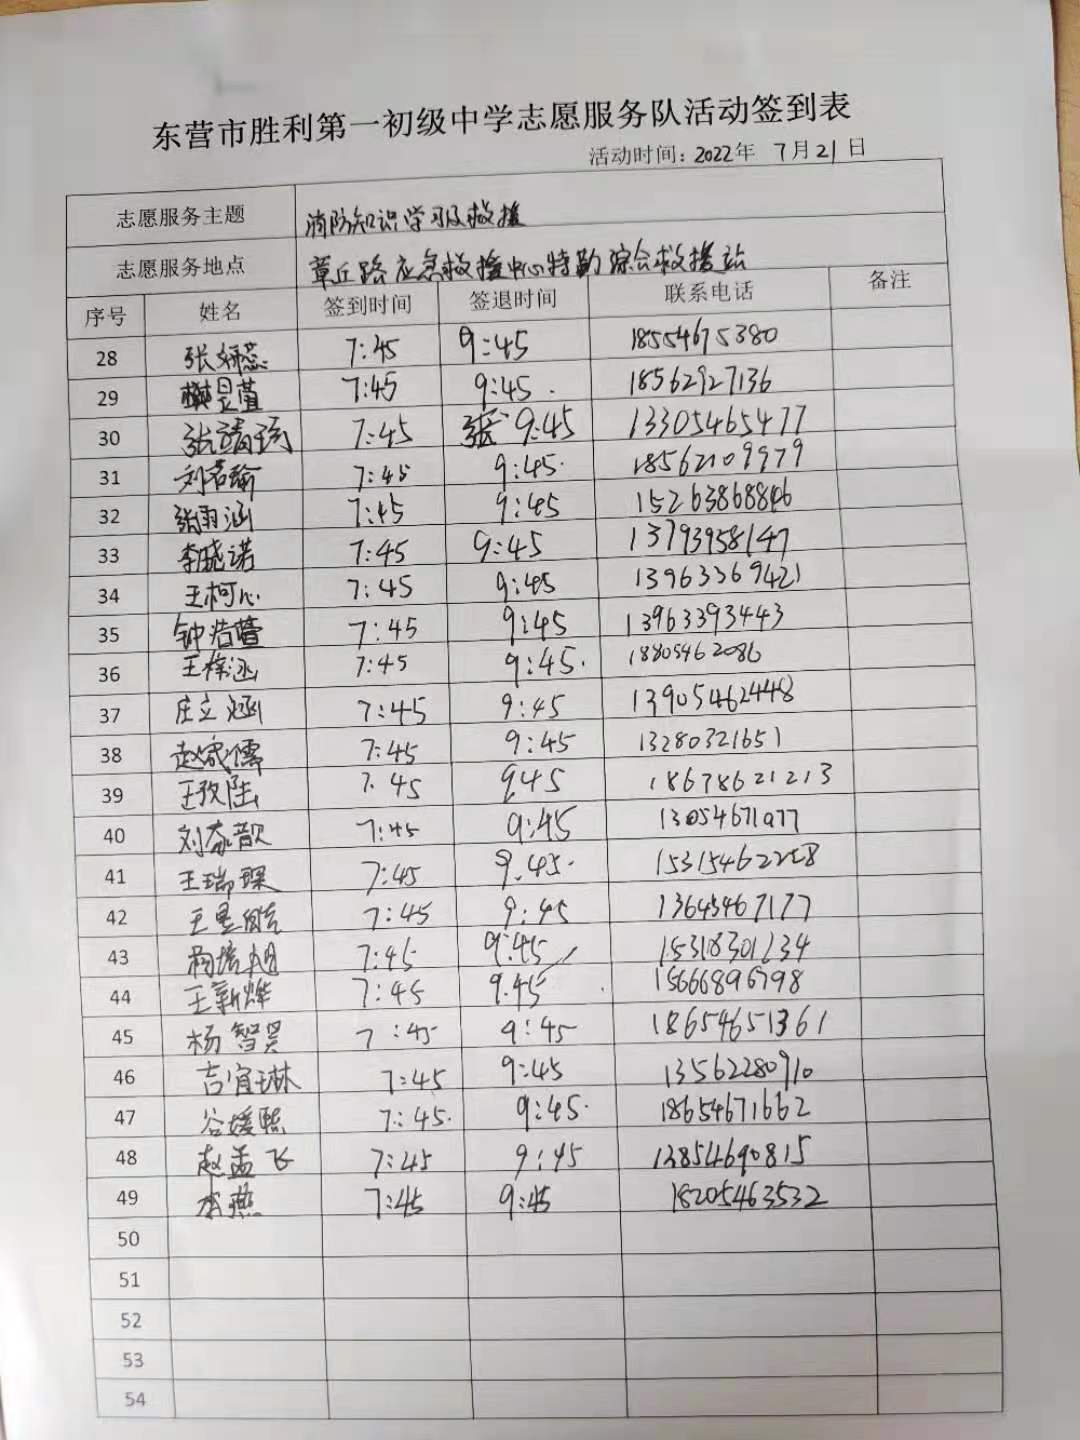 东营市胜利第一初级中学志愿服务队活动签到表
活动时间：2022年 7月21日
志愿服务主题 消防知识学习及救援
志愿服务地点 章丘路应急救援中心特勤综合救援站
序号 姓名 签到时间 签退时间 联系电话 备注
28 张妍蕊 7:45 9:45 18554675380
29 樊昱萱 7:45 9:45. 18562927136
30 张靖琦 7:45 张 9:45 13305465477
31 刘若瑜 7:45 9:45. 18562109979
32 张羽涵 7:45 9:45 15263868846
33 李晓诺 7:45 9:45 13793958147
34 王柯心 7:45 9:45 13963369421
35 钟浩萱 7:45 9:45 13963393443
36 王 涵 7:45 9:45. 18805462086
37 庄立涵 7:45 9:45 13905462448
38 赵宬儒 7:45 9:45 13280321651
39 王 陆 7.45 9:45 18678621213
40 刘 歆 7:45 9:45 13054671977
41 王瑞琛 7:45 9.45.
42 王昱皓 7:45 9:45 13643467177
43 7:45 9:45 15318301234
44 王新烨 7:45 9.45 15666896798
45 杨智昊 7:45 9:45 18654651361
46 吉宜琳 7:45 9:45 13562280910
47 谷媛熙 7:45. 9:45. 18654671662
48 赵孟飞 7:45 9:45 13854690815
49 李燕 7:45 9:45 18205463532
50
51
52
53
54